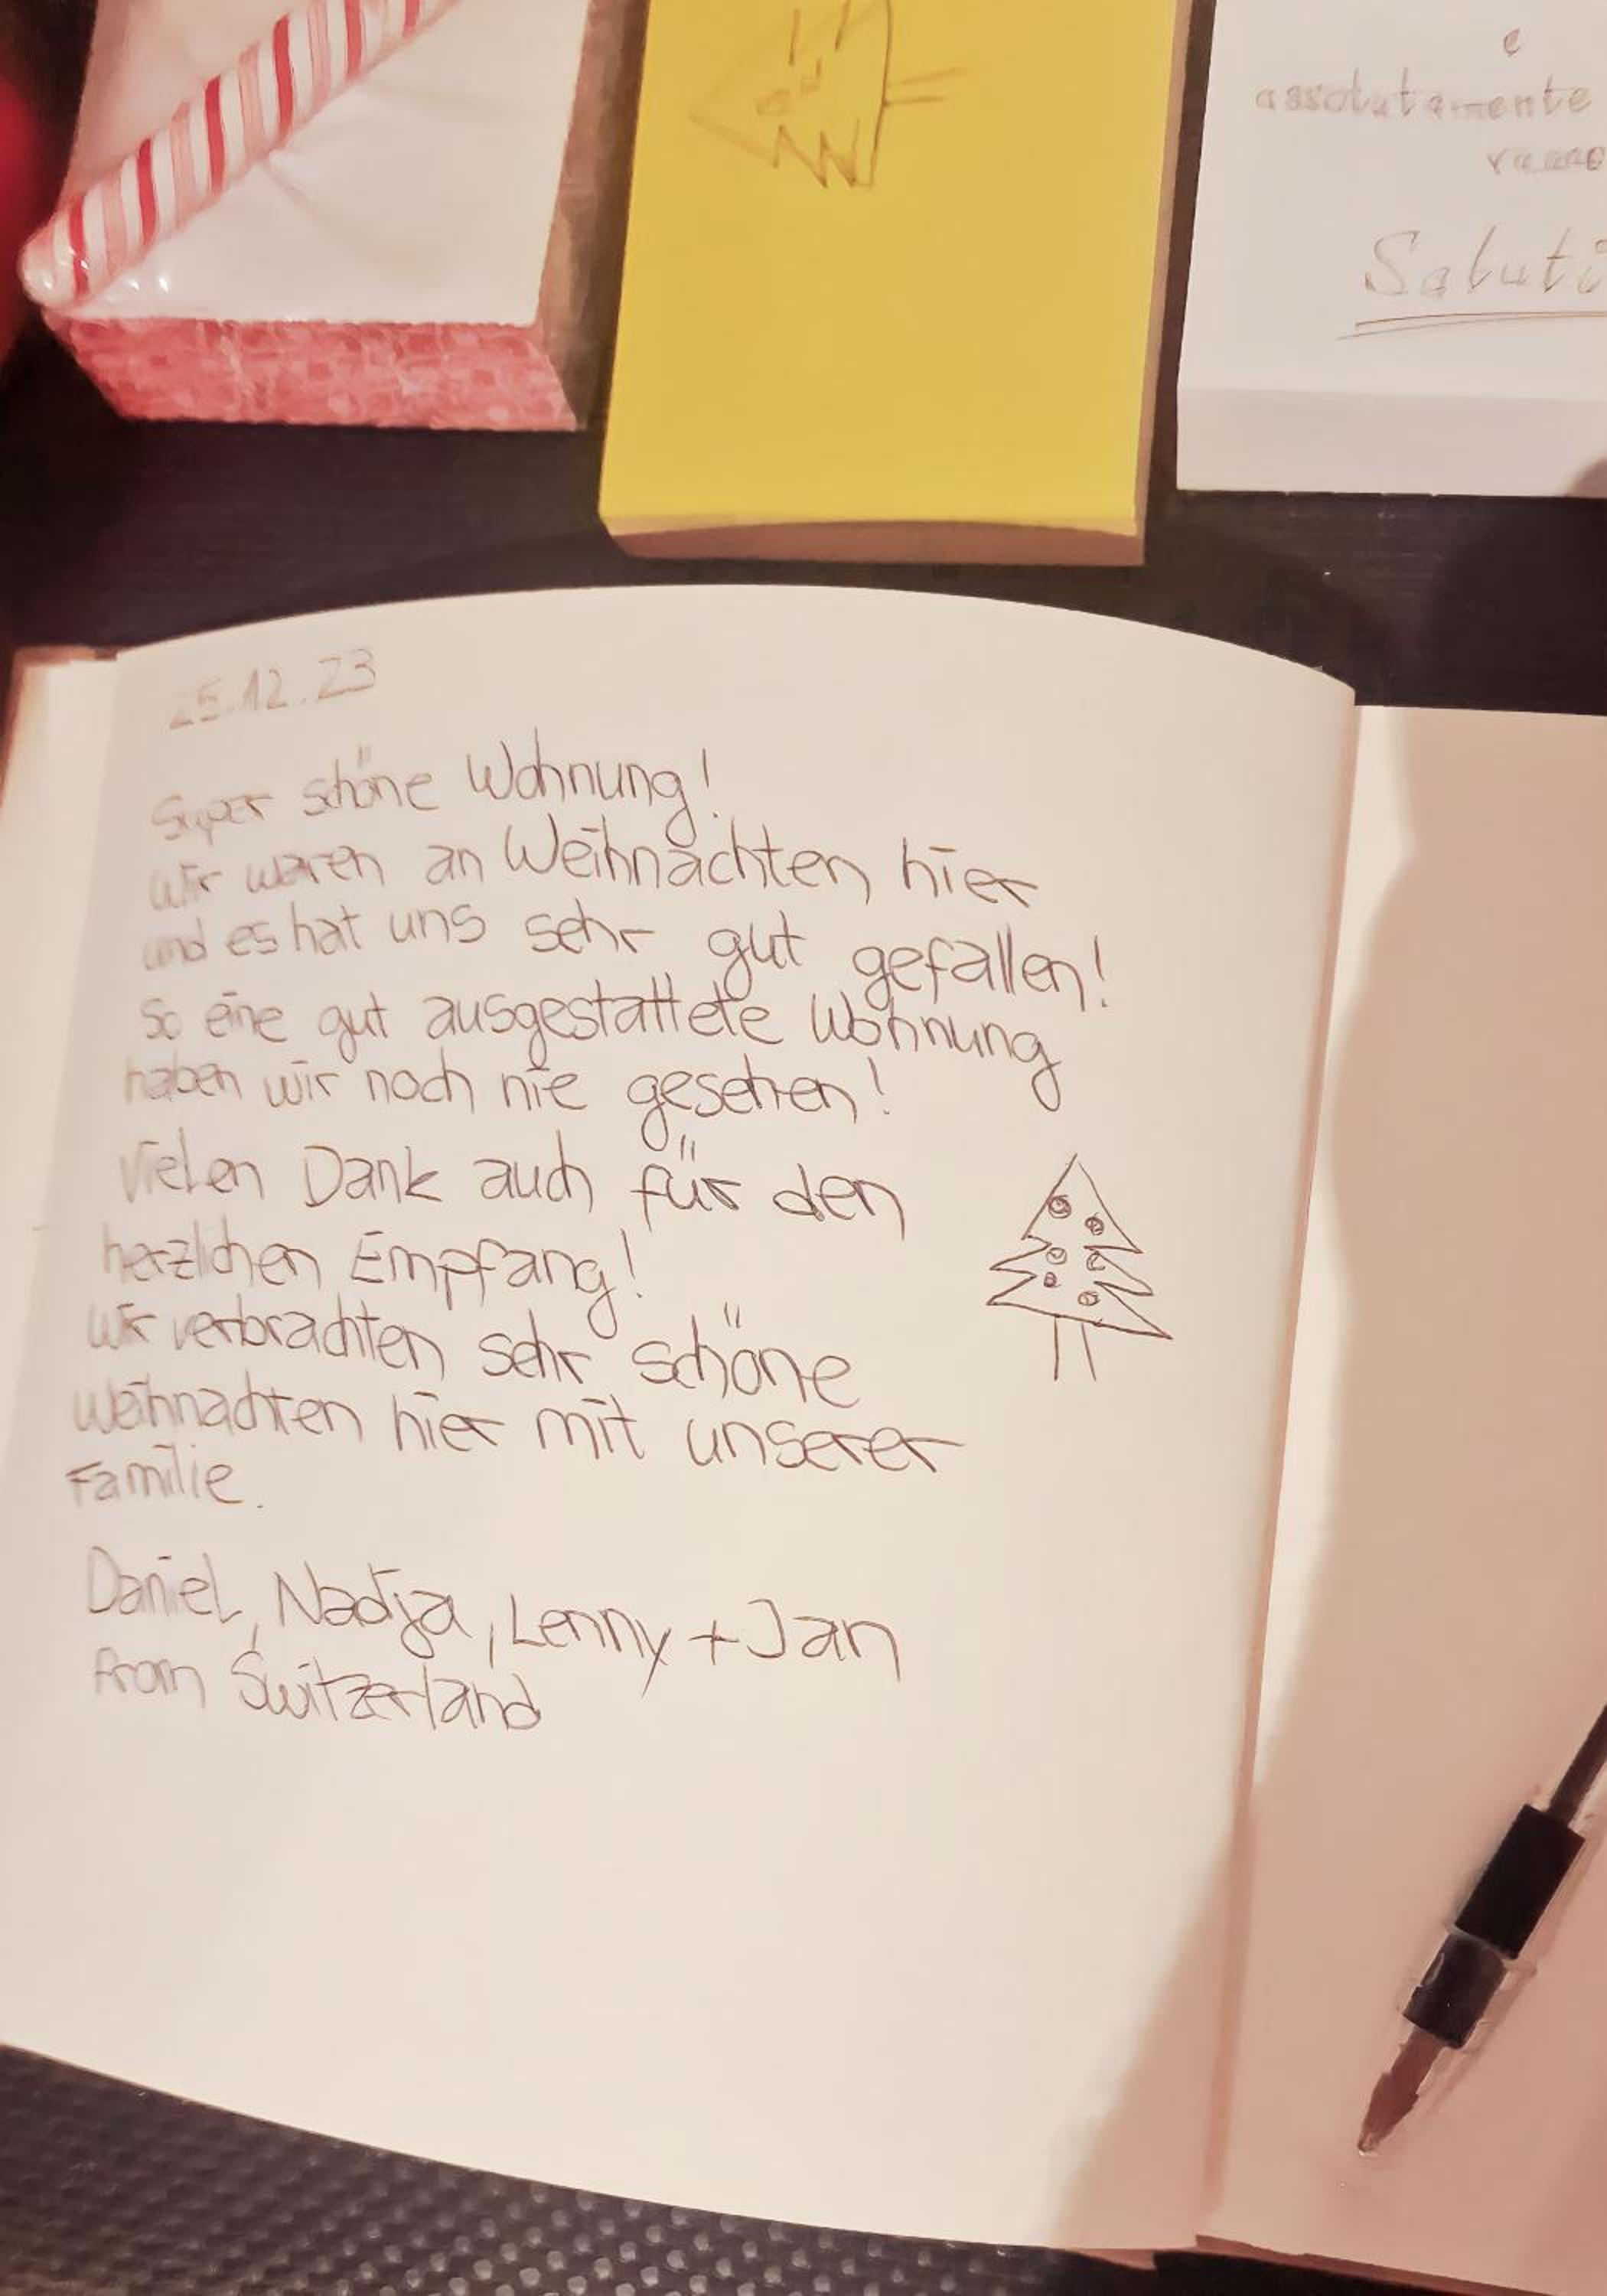 e
assolutamente
Saluti
25.12.23
Super schöne Wohnung!
Wir waren an Weihnachten hier
und es hat uns sehr gut gefallen!
So eine gut ausgestattete Wohnung
haben wir noch nie gesehen!
Vielen Dank auch für den
herzlichen Empfang!
Wir verbrachten sehr schöne
Weihnachten hier mit unserer
Familie.
Daniel, Nadja, Lenny + Jan
from Switzerland